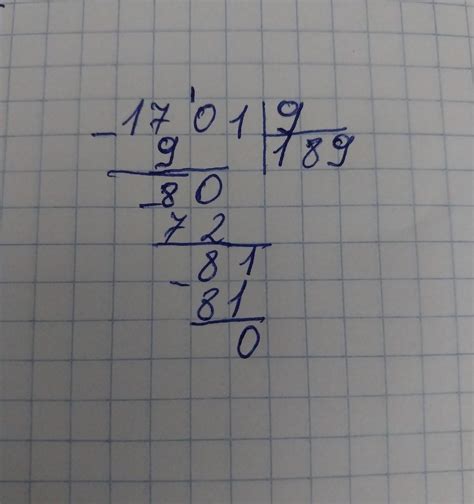 -1701|9
9 189
-80
72
-81
81
0